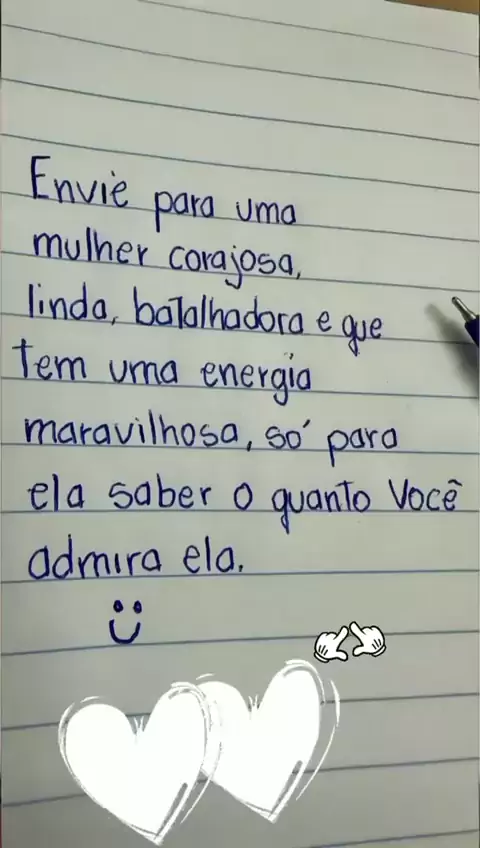 Envie para uma
mulher corajosa,
linda, batalhadora e que
tem uma energia
maravilhosa, só para
ela saber o quanto você
admira ela.